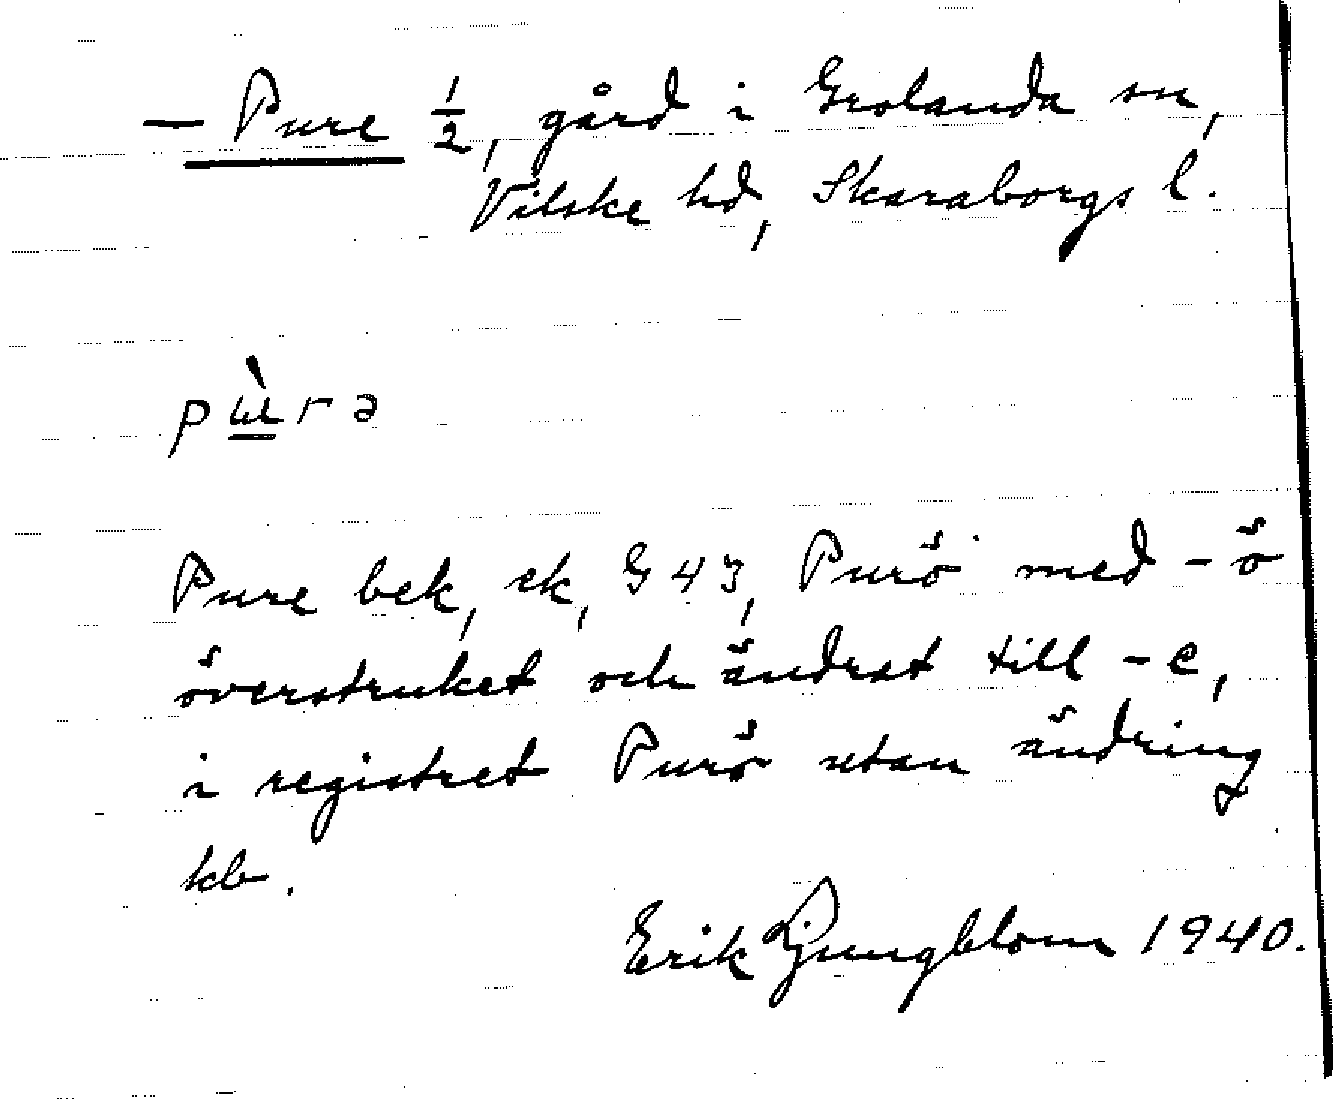 — Pure 1/2, gård i Grolanda sn,
Vilske hd, Skaraborgs l.
pɯ̀rə
Pure bek, ek, G 43, Purö med -ö
överstruket och ändrat till -e,
i registret Purö utan ändring
kb.
Erik Ljungblom 1940.